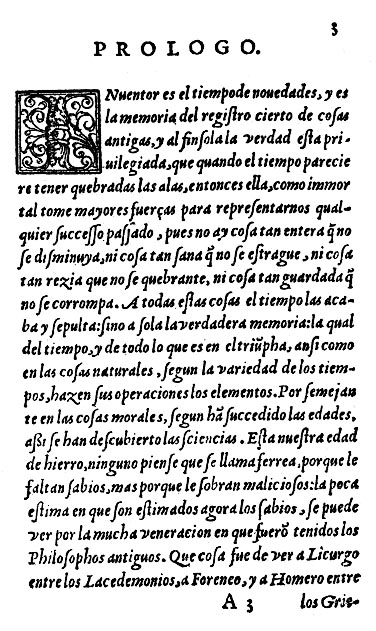 3
PROLOGO.
INuentor es el tiempo de nouedades, y es
la memoria del registro cierto de cosas
antigas, y al fin sola la verdad esta pri-
uilegiada, que quando el tiempo parecie
re tener quebradas las alas, entonces ella, como immor
tal tome mayores fuerças para representarnos qual-
quier successo passado, pues no ay cosa tan entera q̃ no
se disminuya, ni cosa tan sana q̃ no se estrague, ni cosa
tan rezia que no se quebrante, ni cosa tan guardada q̃
no se corrompa. A todas estas cosas el tiempo las aca-
ba y sepulta: sino a sola la verdadera memoria: la qual
del tiempo, y de todo lo que es en el triũpha, ansi como
en las cosas naturales, segun la variedad de los tiem-
pos, hazen sus operaciones los elementos. Por semejan
te en las cosas morales, segun hã succedido las edades,
assi se han descubierto las sciencias. Esta nuestra edad
de hierro, ninguno piense que se llama ferrea, porque le
faltan sabios, mas porque le sobran maliciosos: la poca
estima en que son estimados agora los sabios, se puede
ver por la mucha veneracion en que fuerõ tenidos los
Philosophos antiguos. Que cosa fue de ver a Licurgo
entre los Lacedemonios, a Foreneo, y a Homero entre
A 3 los Grie-